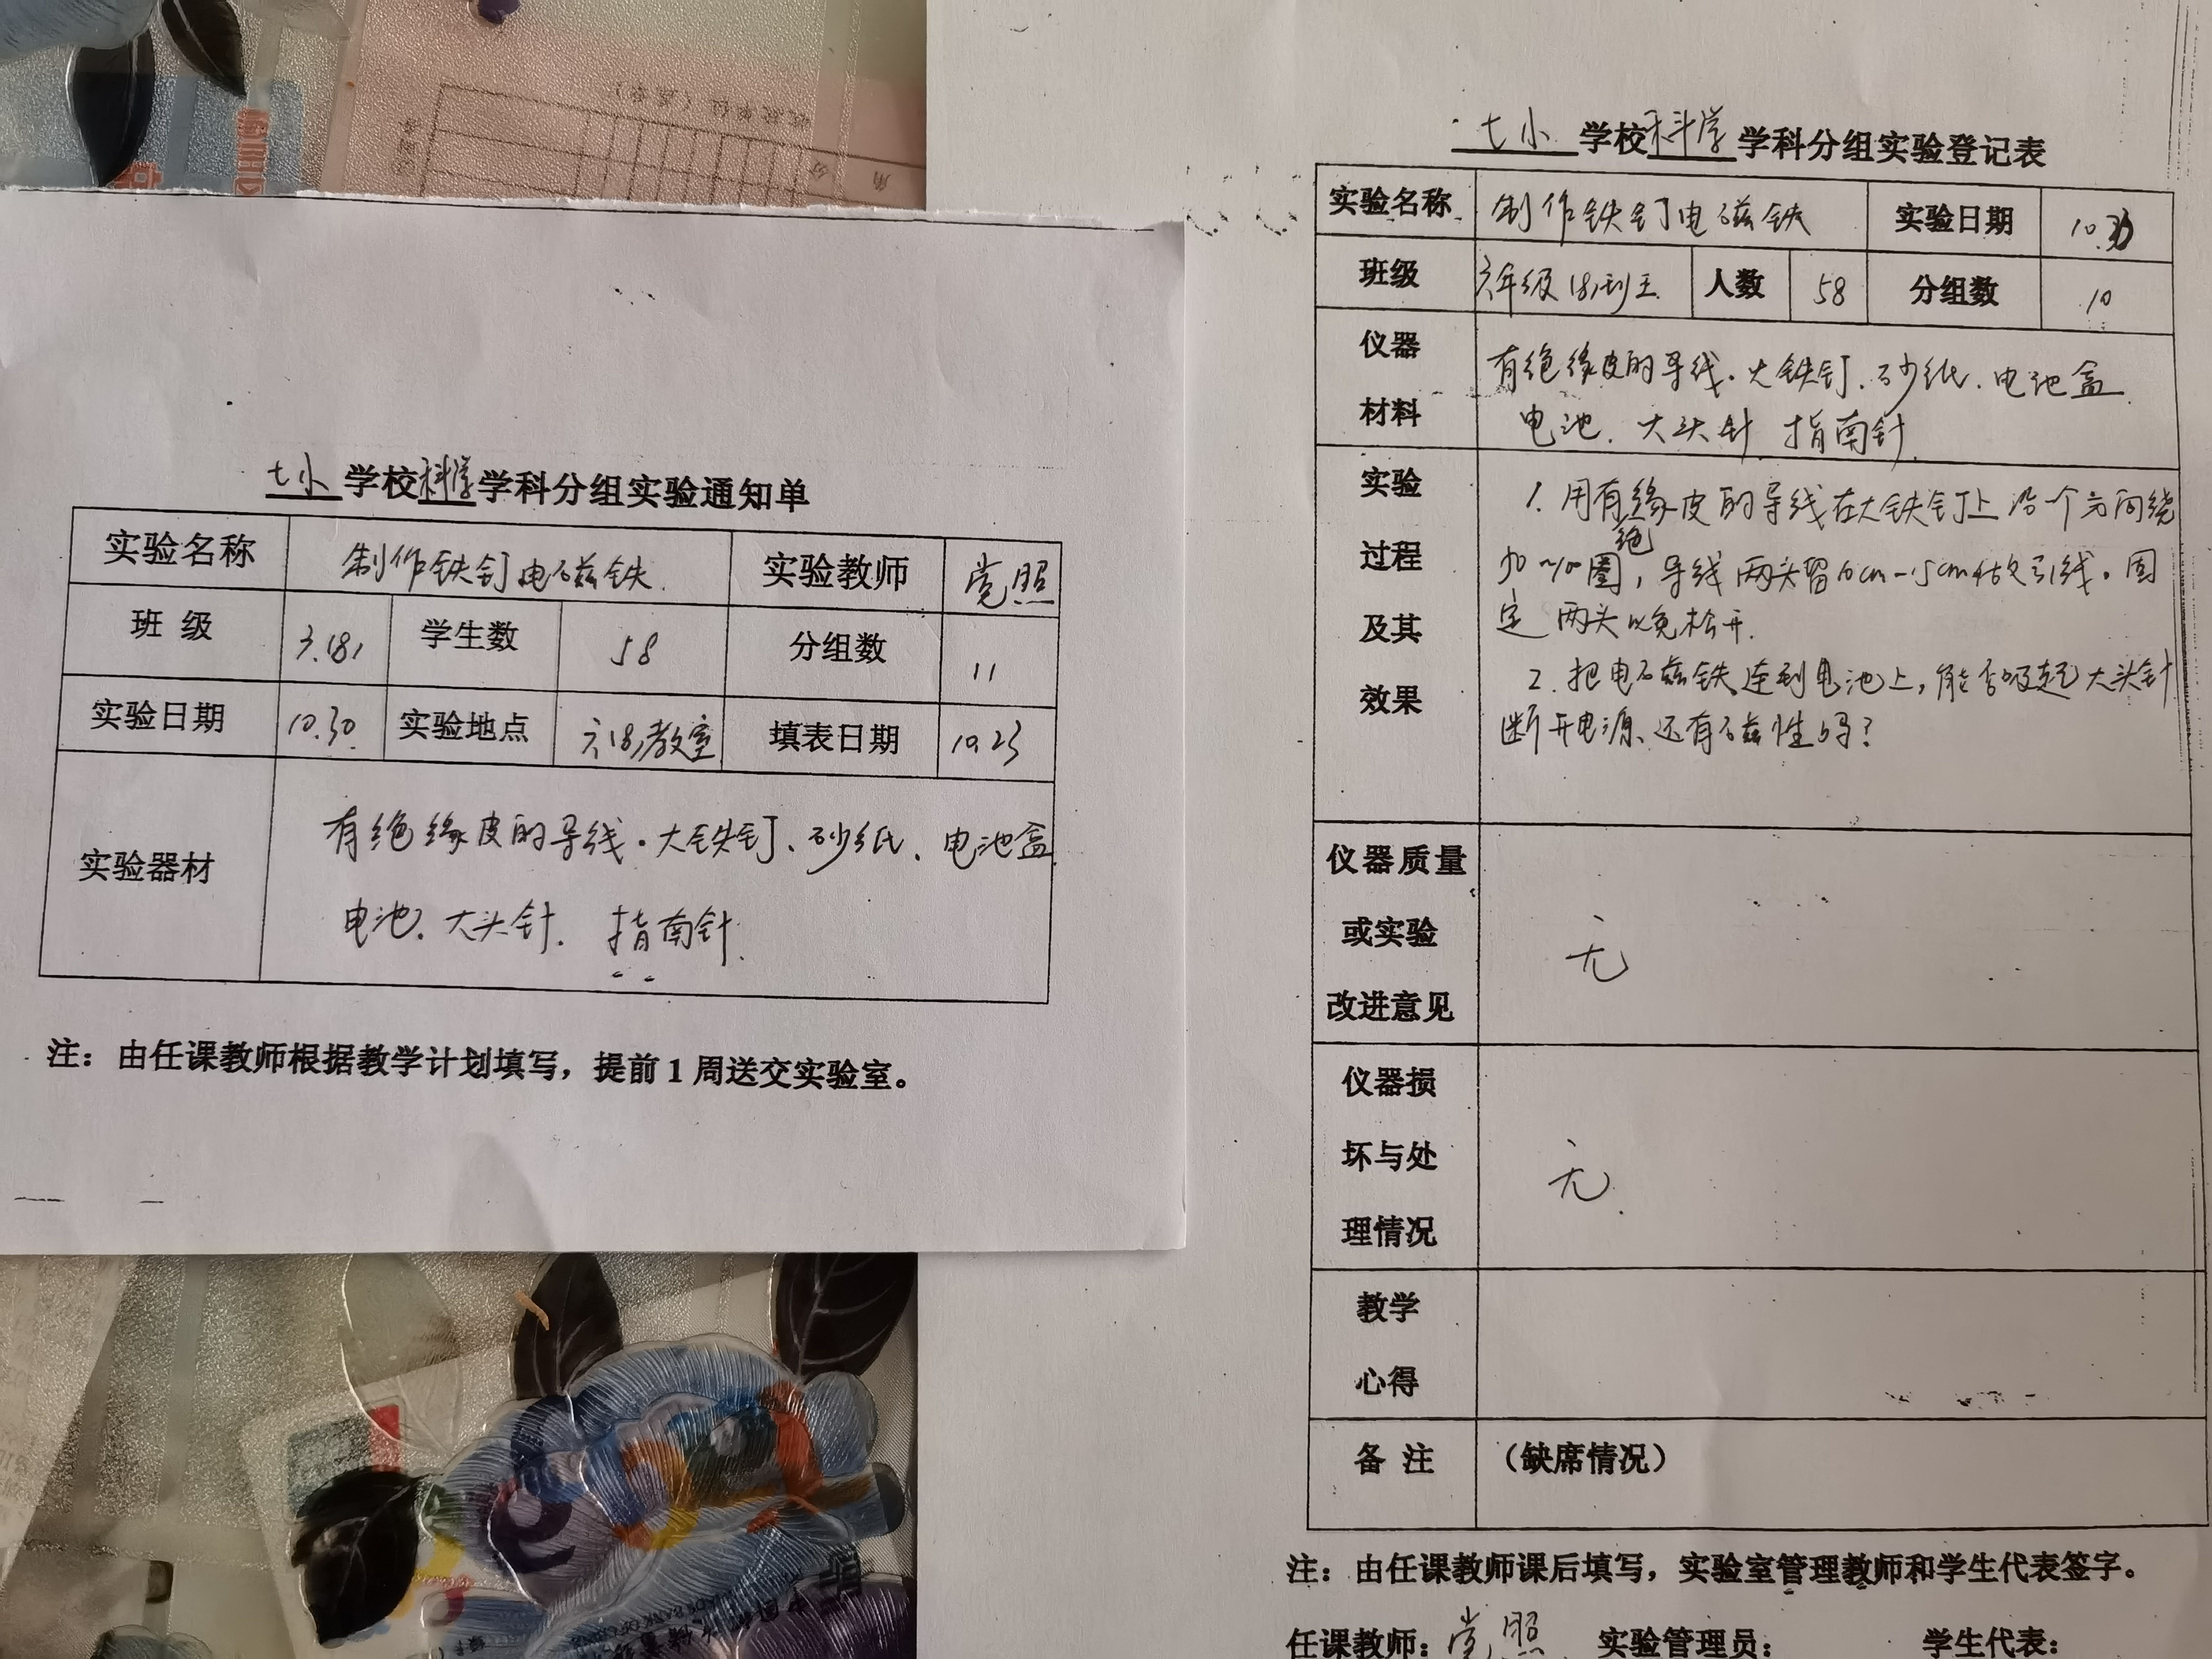 七小学校科学学科分组实验通知单
实验名称 制作铁钉电磁铁 实验教师 党照
班级 六(8) 学生数 58 分组数 11
实验日期 10.30 实验地点 六(8)教室 填表日期 10.23
实验器材
有绝缘皮的导线.大铁钉、砂纸、电池盒
电池、大头针、指南针.
注：由任课教师根据教学计划填写，提前1周送交实验室。
七小学校科学学科分组实验登记表
实验名称 制作铁钉电磁铁 实验日期 10.30
班级 六年级(8)班 人数 58 分组数 10
仪器
材料
有绝缘皮的导线.大铁钉.砂纸.电池盒
电池.大头针 指南针.
实验
过程
及其
效果
1.用有绝缘皮的导线在大铁钉上沿个方向绕
圈，导线两头留10cm-15cm做引线。固
定两头以免松开.
2.把电磁铁连到电池上，能否吸起大头针
断开电源、还有磁性吗？
仪器质量
或实验
改进意见
无
仪器损
坏与处
理情况
无.
教学
心得
备注 （缺席情况）
注：由任课教师课后填写，实验室管理教师和学生代表签字。
任课教师：党照 实验管理员： 学生代表：